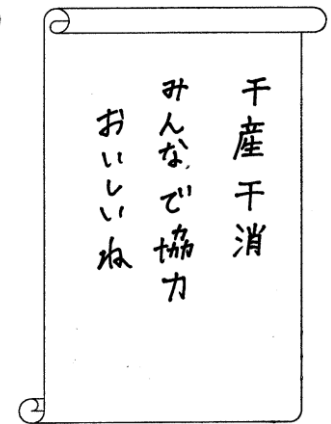 千産千消
みんなで協力
おいしいね